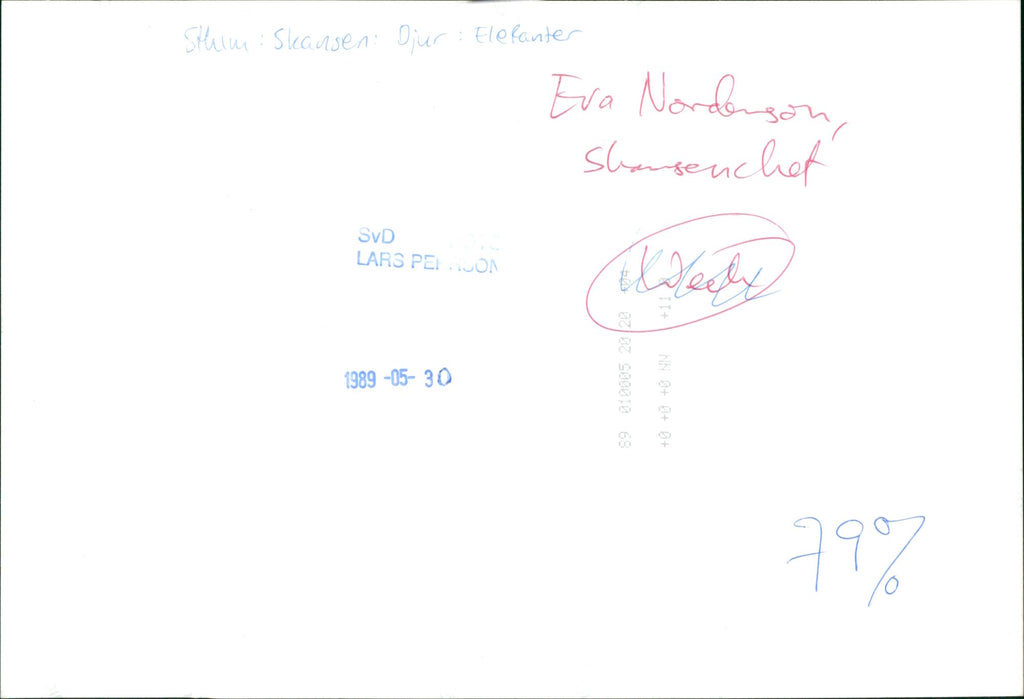 Sthlm: Skansen: Djur: Elefanter
Eva Nordenson,
Skansenchef
SvD
LARS
1989 -05- 30
89 010005 20 20 +04
+0 +0 +0 NN +11
79%